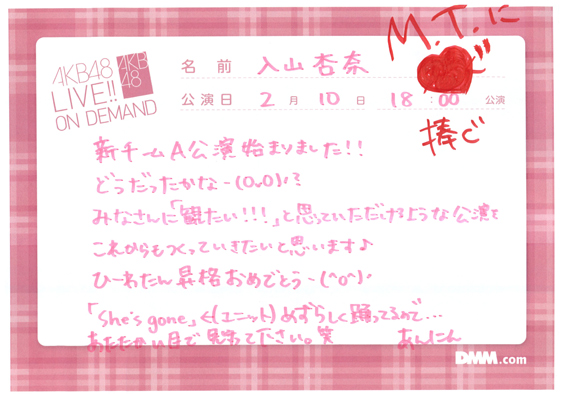 M.T.に
捧ぐ
AKB48
LIVE!!
ON DEMAND
AKB
48
名 前 入山杏奈
公演日 2 月 10 日 18 : 00 公演
新チームA公演始まりました!!
どうだったかなー(0v0)
みなさんに「観たい!!!」と思っていただけるような公演を
これからもつくっていきたいと思います♪
ひーわたん昇格おめでとう~(^o^)
「She's gone」←(ユニット)めずらしく踊ってるので...
あたたかい目で見守って下さい。笑 あんにん
DMM.com